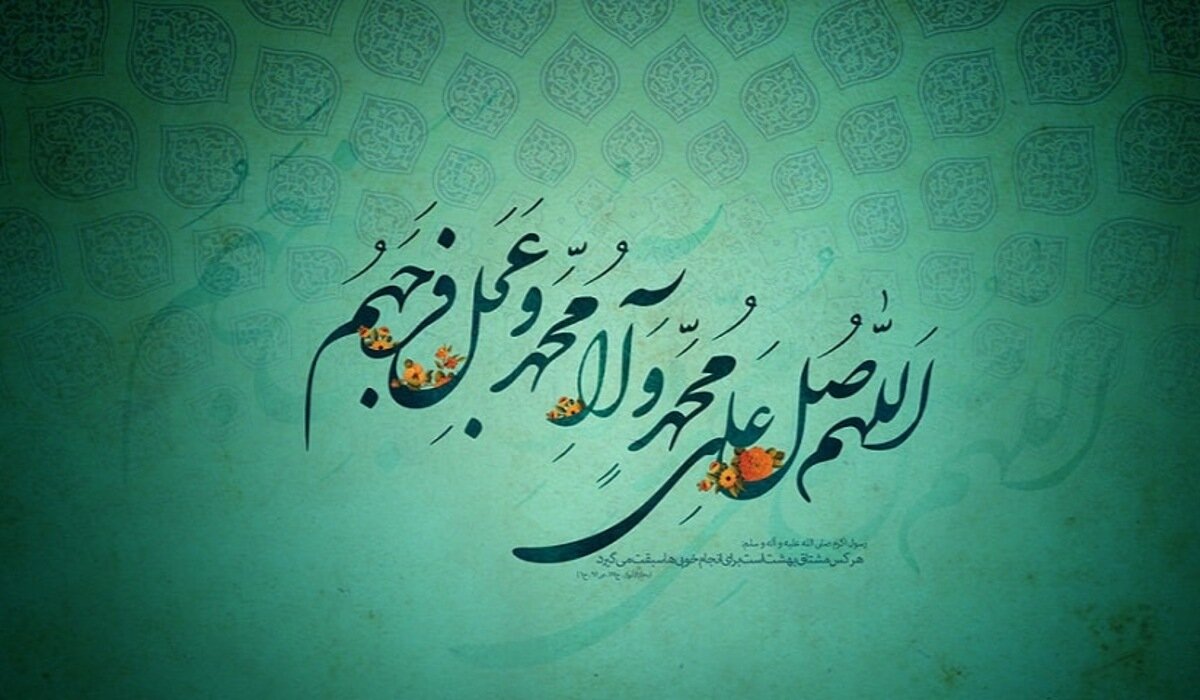 اَللّٰهُمَّ صَلِّ عَلَی مُحَمَّدٍ وَ آلِ مُحَمَّدٍ وَ عَجِّلْ فَرَجَهُمْ
رسول اکرم صلی الله علیه و آله و سلم:
هر کس مشتاق بهشت است برای انجام خوبی‌ها سبقت می‌گیرد